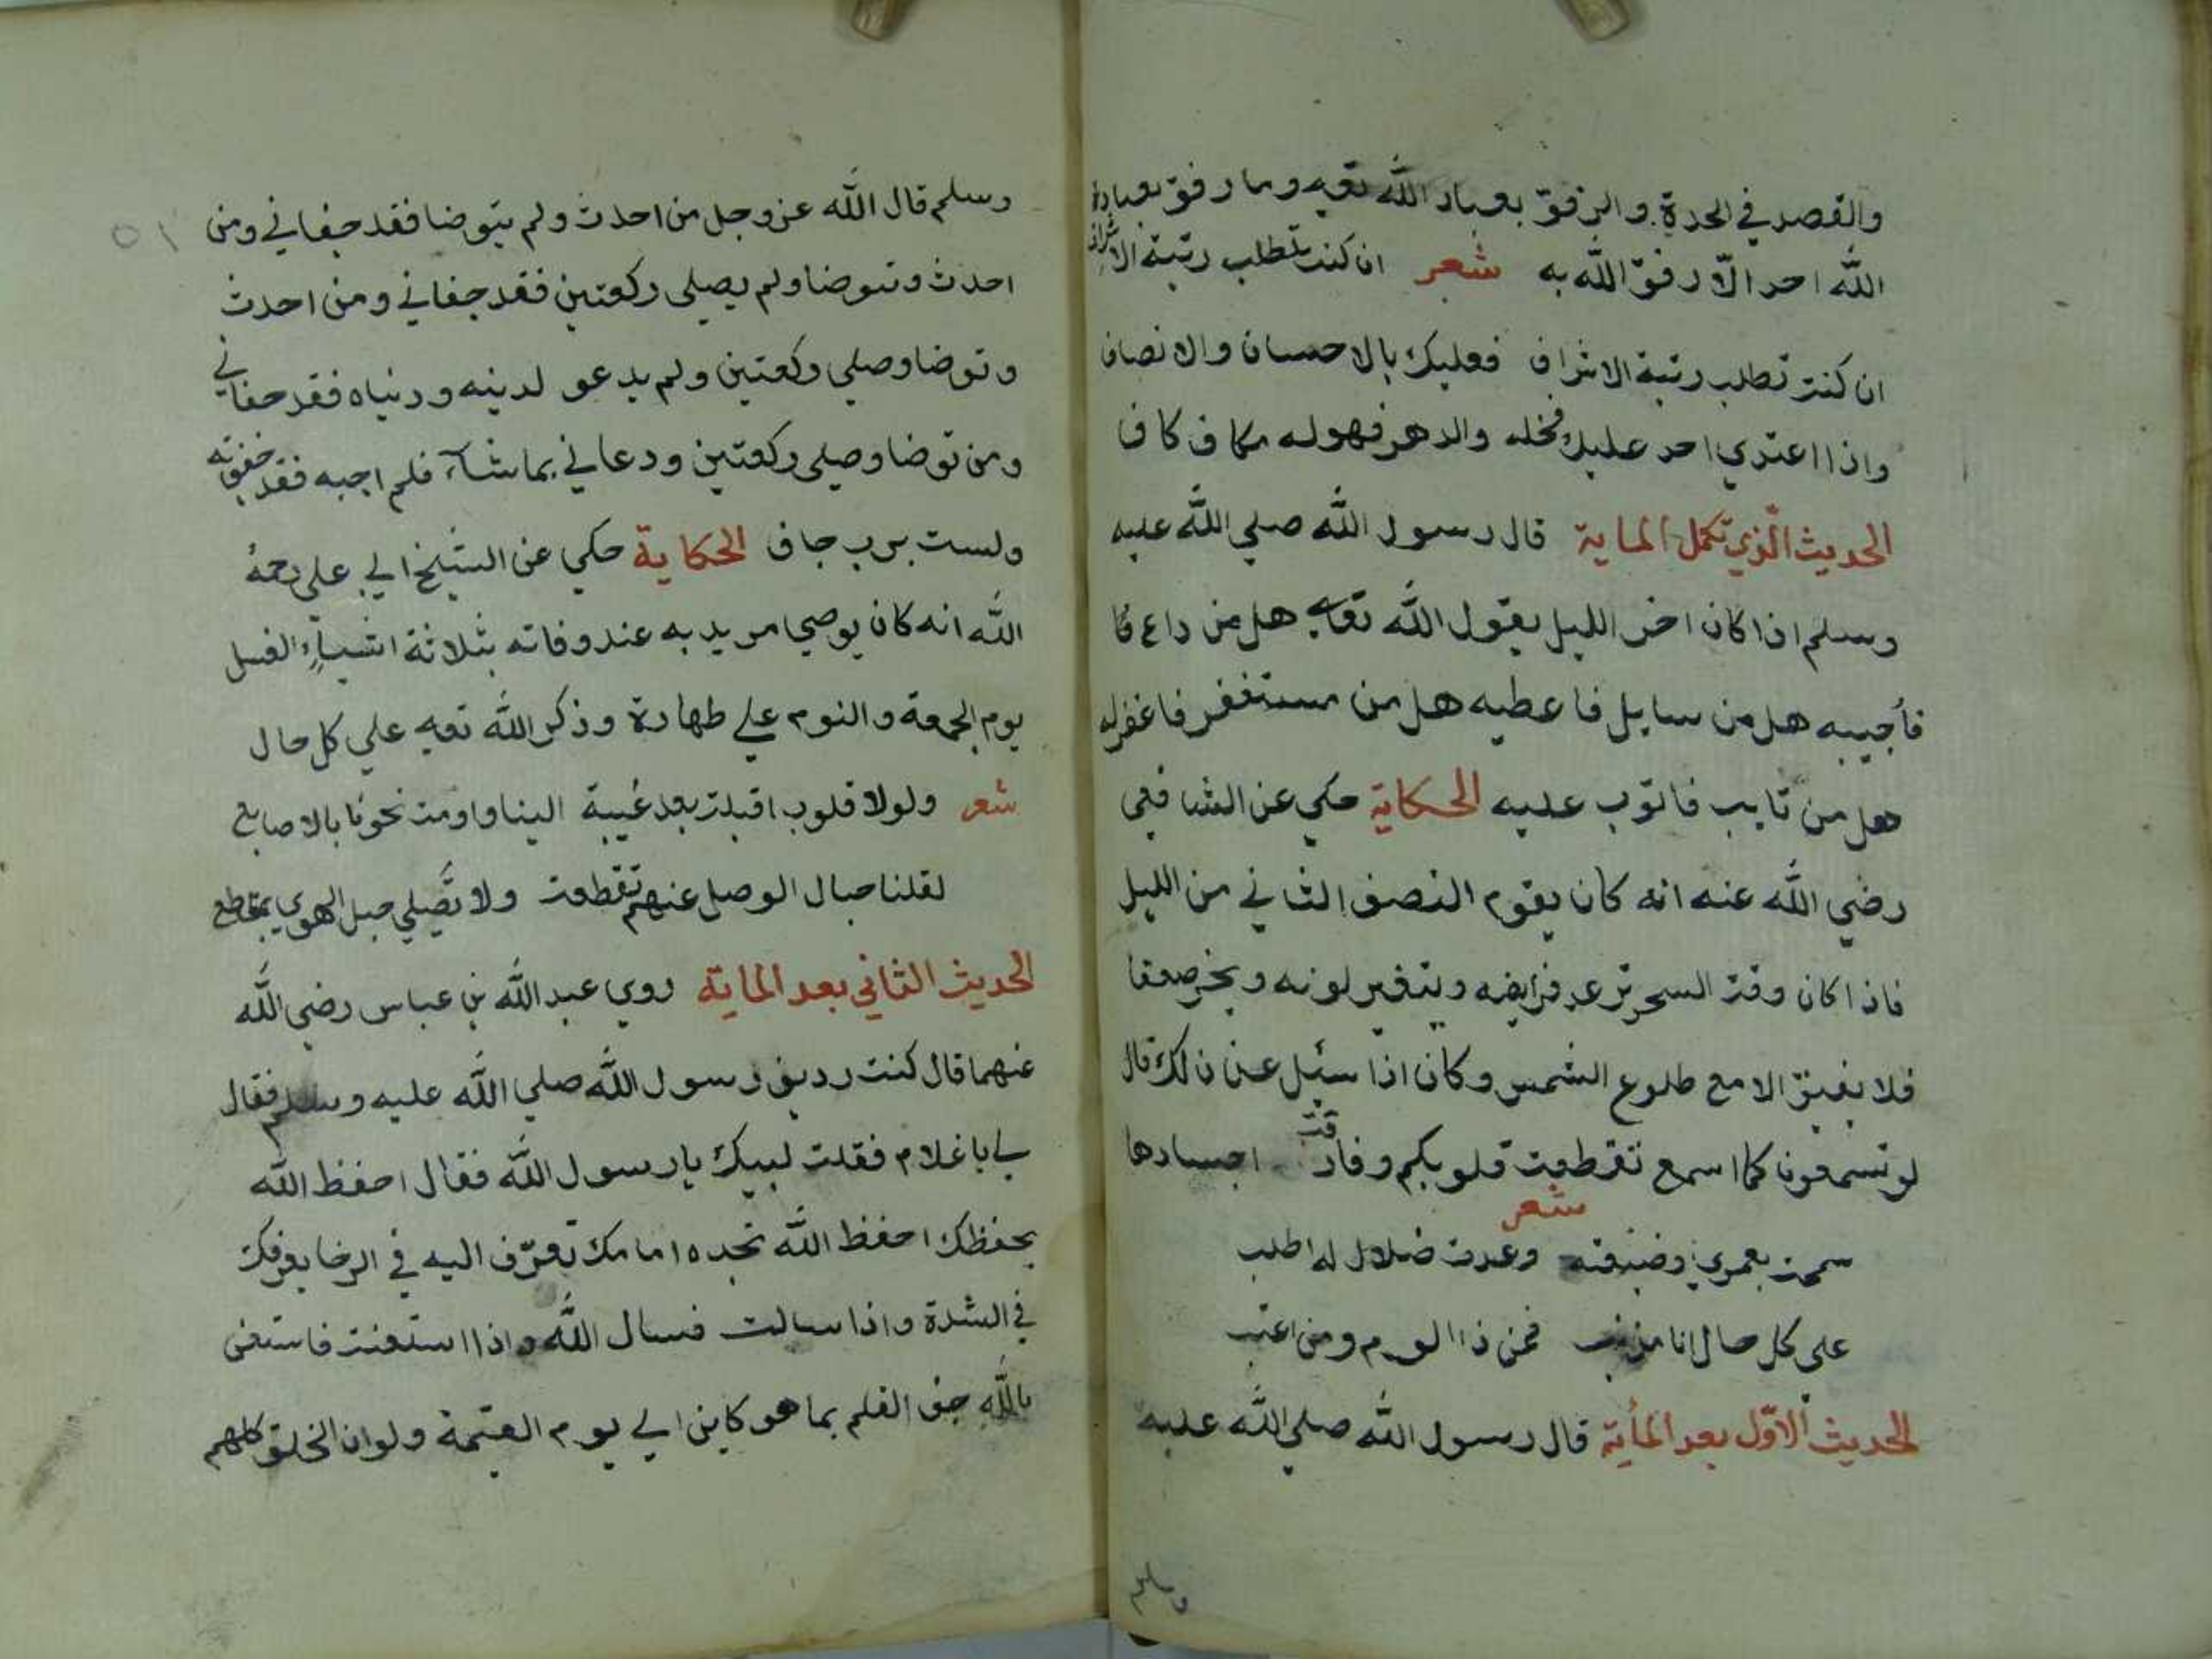 والقصد في الجدة والرفق بعباد الله تعه وما رفق بعباده
الله احد الّا رفق الله به شعر ان كنت تطلب رتبة الاشراف
ان كنت تطلب رتبة الاشراف فعليك بالاحسان والانصاف
واذا اعتدي احد عليك فخله والدهر فهو له مكاف كاف
الحديث الّذي تكمل الماية قال رسول الله صلي الله عليه
وسلم اذا كان اخر الليل يقول الله تعه هل من داع فا
فأجيبه هل من سايل فاعطيه هل من مستغفر فاغفر له
هل من تايب فاتوب عليه الحكاية حكي عن الشافعي
رضي الله عنه انه كان يقوم النصف الثاني من الليل
فاذا كان وقت السحر ترعد فرايضه ويتغير لونه ويخر صعقا
فلا يفيق الا مع طلوع الشمس وكان اذا سئل عن ذلك قال
لو تسمعونا كما اسمع تقطعت قلوبكم وفارقت اجسادها
شعر
سمحت بعمري وضيعته وعدت ضلالا له اطلب
علي كل حال انا مذنب فمن ذا الوم ومن اعتب
الحديث الاوّل بعد المأية قال رسول الله صلي الله عليه
وسلم
٥١
وسلم قال الله عز وجل من احدث ولم يتوضا فقد جفاني ومن
احدث وتتوضا ولم يصلي ركعتين فقد جفاني ومن احدث
وتوضا وصلي ركعتين ولم يدعو لدينه ودنياه فقد جفاني
ومن توضا وصلي ركعتين ودعاني بما شاء فلم اجبه فقد جفوته
ولست برب جاف الحكاية حكي عن الشيخ ابي علي رحمه
الله انه كان يوصي مريديه عند وفاته بثلاثة اشياء الغسل
يوم الجمعة والنوم علي طهارة وذكر الله تعه علي كل حال
شعر ولولا قلوب اقبلت بعد غيبة الينا واومت نحونا بالاصابع
لقلنا حبال الوصل عنهم تقطعت ولا تصلي حبل الهوي بتقاطع
الحديث الثاني بعد الماية روي عبد الله بن عباس رضي الله
عنهما قال كنت رديف رسول الله صلي الله عليه وسلم فقال
لي يا غلام فقلت لبيك يا رسول الله فقال احفظ الله
يحفظك احفظ الله تجده امامك تعرّف اليه في الرخا يعرفك
في الشدة واذا سالت فسال الله واذا استعنت فاستعن
بالله جف القلم بما هو كاين الي يوم القيمة ولو ان الخلق كلهم